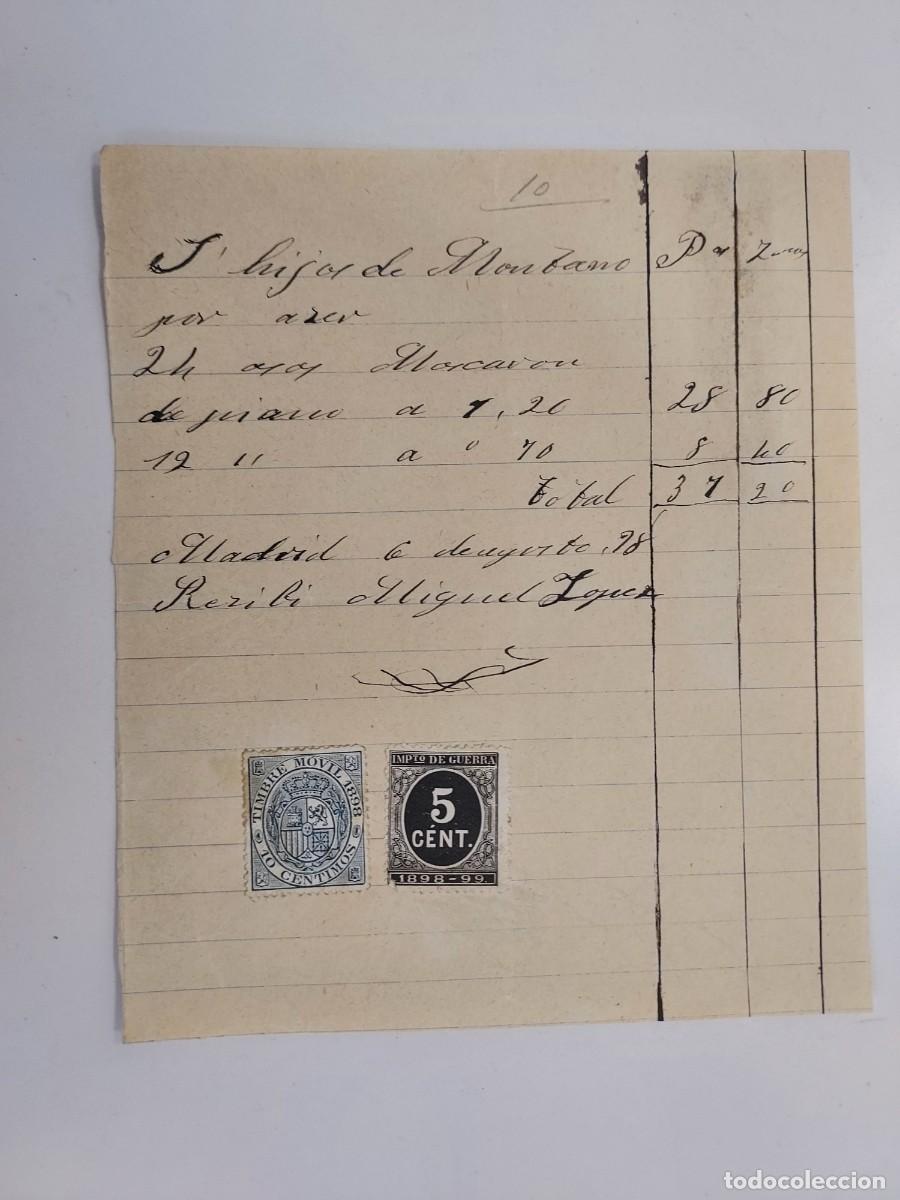 10
S' hijos de Montano Pas
por azer
24 asas Moscaron
de piano a 1,20 28 80
12 " a 0 70 8 40
total 37 20
Madrid 6 de agosto, 98
Rezibi Miguel Lopez
TIMBRE MOVIL 1898
10 CENTIMOS
IMPTO DE GUERRA
5
CÉNT.
1898-99.
todocoleccion